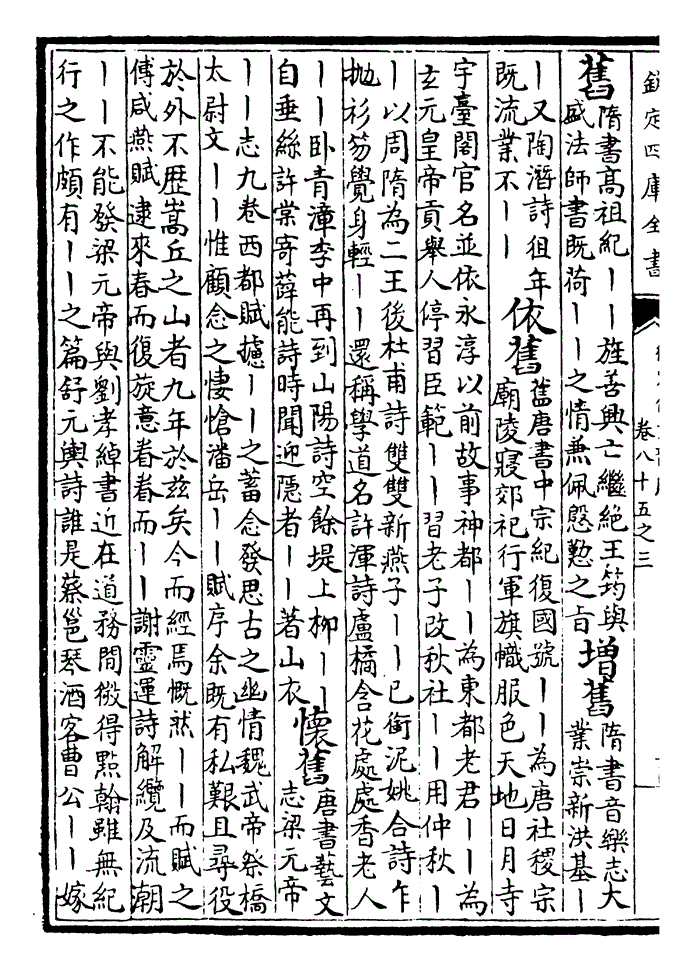 欽定四庫全書
卷八十五之三
舊
隋書高祖紀｜｜旌善興亡繼絶王筠與
盛法師書既荷｜｜之情兼佩慇懃之旨
增舊
隋書音樂志大
業崇新洪基｜
｜又陶潛詩徂年
既流業不｜｜
依舊
舊唐書中宗紀復國號｜｜為唐社稷宗
廟陵寢郊祀行軍旗幟服色天地日月寺
宇臺閣官名並依永淳以前故事神都｜｜為東都老君｜｜為
玄元皇帝貢舉人停習臣範｜｜習老子改秋社｜｜用仲秋｜
｜以周隋為二王後杜甫詩雙雙新燕子｜｜已銜泥姚合詩乍
抛衫笏覺身輕｜｜還稱學道名許渾詩盧橘含花處處香老人
｜｜卧青漳李中再到山陽詩空餘堤上柳｜｜
自垂絲許棠寄薛能詩時聞迎隱者｜｜著山衣
懷舊
唐書藝文
志梁元帝
｜｜志九卷西都賦攄｜｜之蓄念發思古之幽情魏武帝祭橋
太尉文｜｜惟顧念之悽愴潘岳｜｜賦序余既有私艱且尋役
於外不歴嵩丘之山者九年於兹矣今而經焉慨然｜｜而賦之
傅咸燕賦逮來春而復旋意眷眷而｜｜謝靈運詩解纜及流潮
｜｜不能發梁元帝與劉孝綽書近在道務間微得點翰雖無紀
行之作頗有｜｜之篇舒元輿詩誰是蔡邕琴酒客曹公｜｜嫁